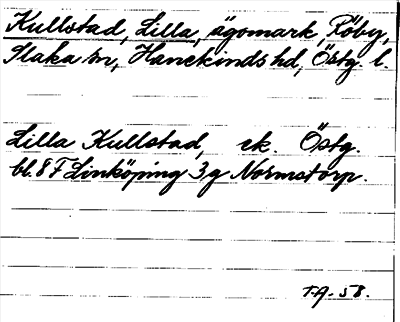 Kullstad, Lilla, ägomark, Röby,
Slaka sn, Hanekinds hd, Östg. l.
Lilla Kullstad, ek. Östg.
bl. 8 F Linköping 3g Normstorp.
T.A. 58.